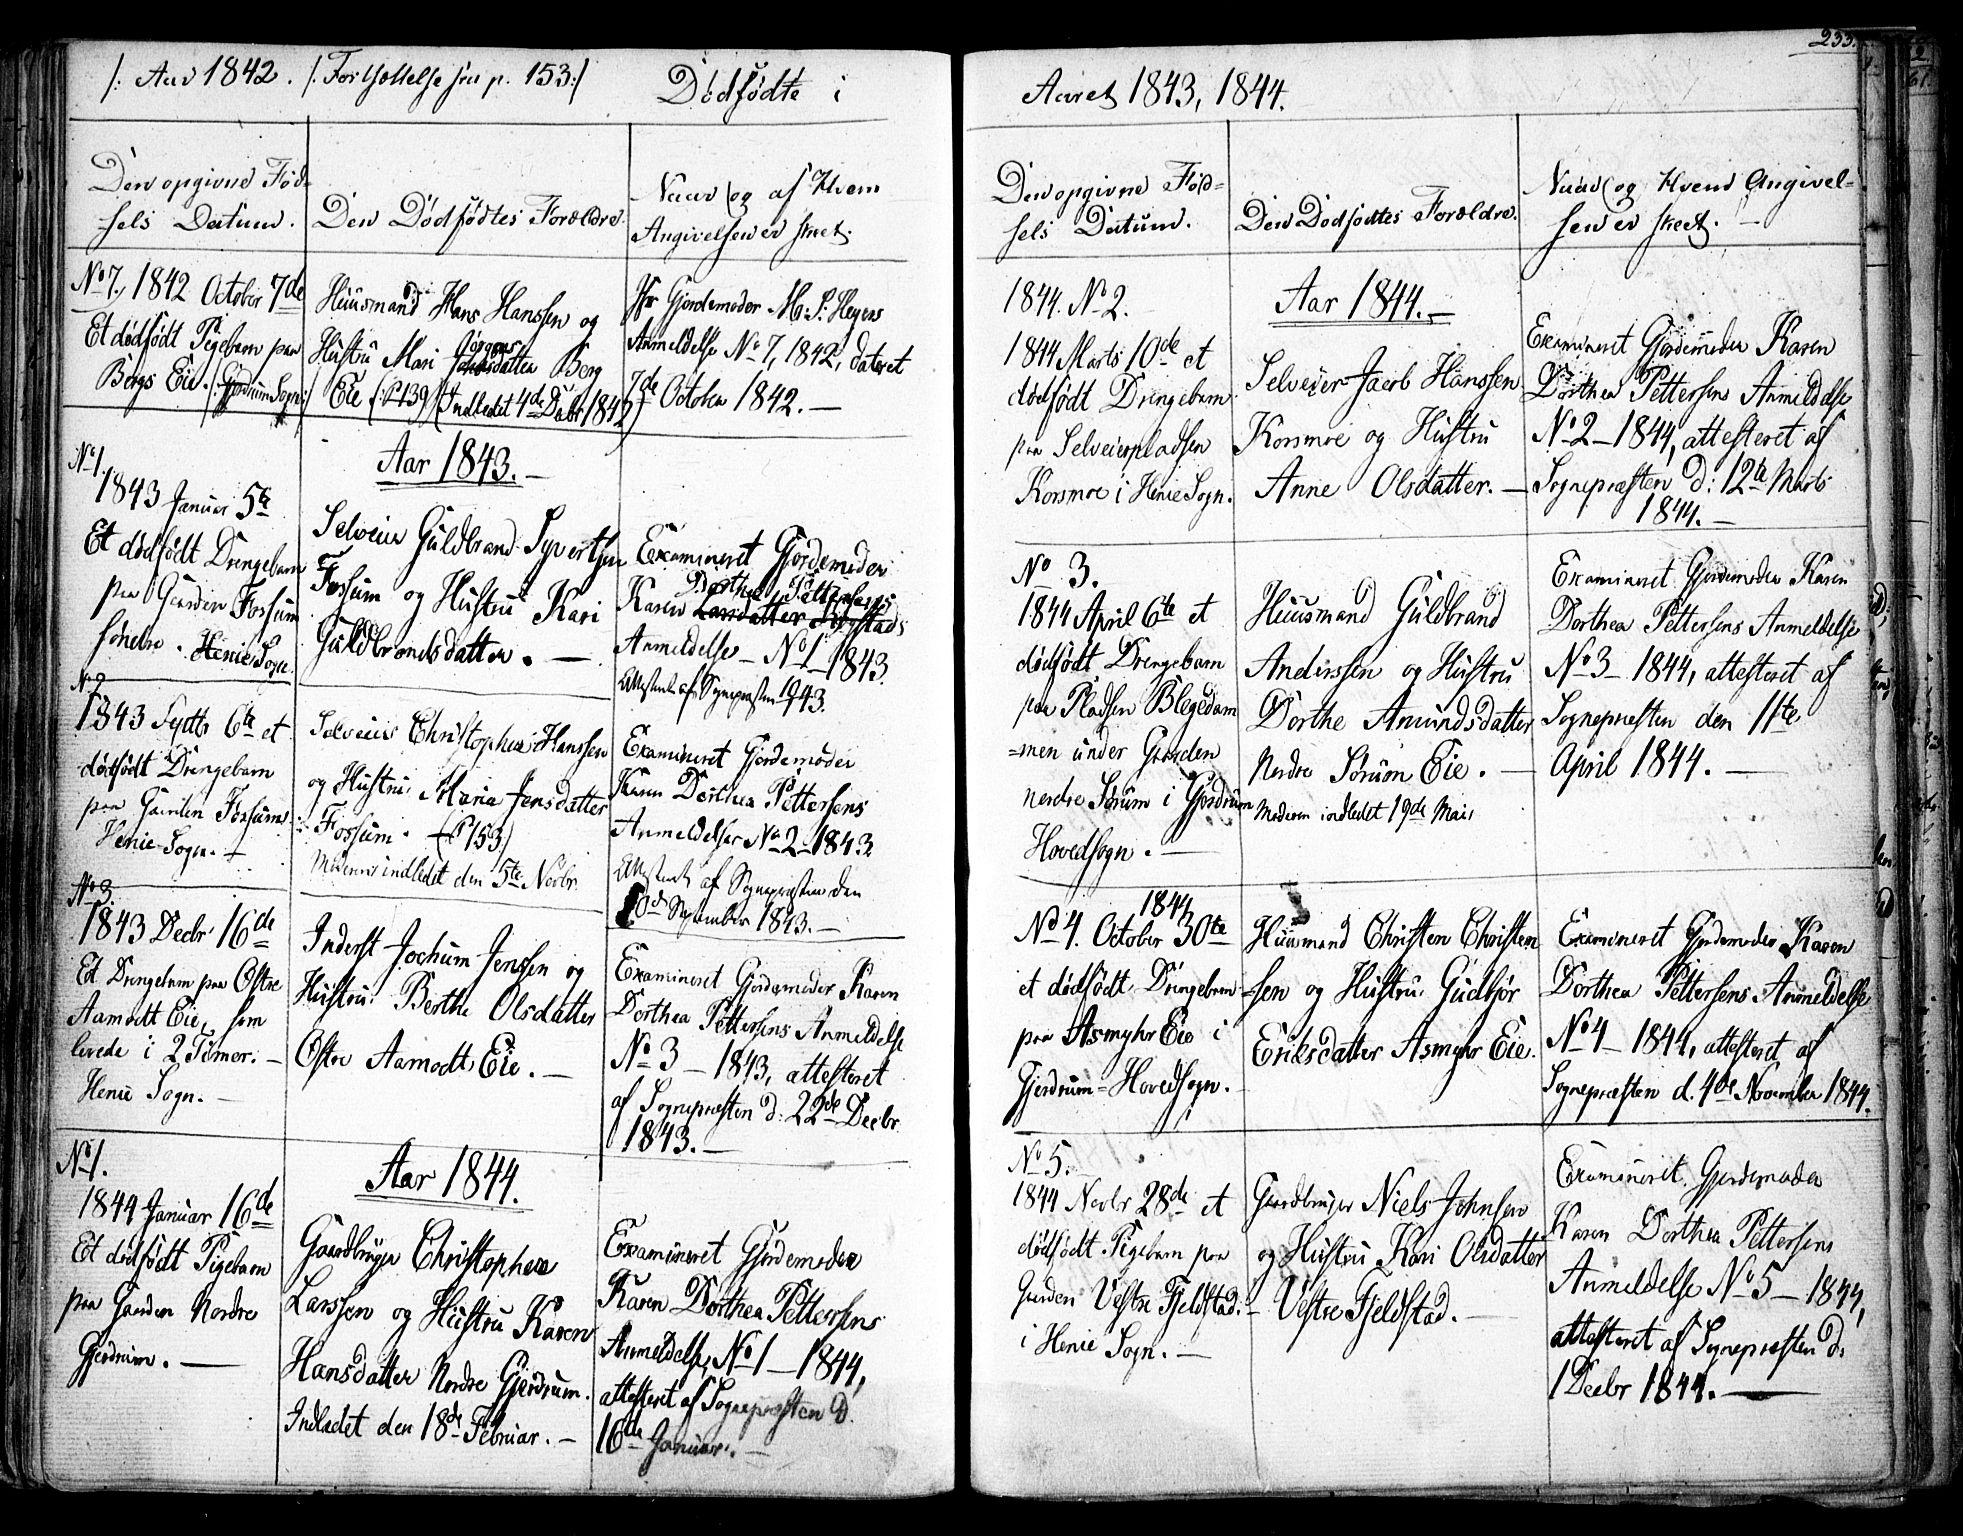 /: Aar 1842. /: Fortsættelse fra p. 153:/ Dødfødte i
Den opgivne Fød-
sels Datum.
Den Dødfødtes Forældre.
Naar og af Hvem
Angivelsen er skeet.
No 7, 1842 October 7de
Et dødfødt Pigebarn paa
Bergs Eie. (: Gjerdrum Sogn:)
Huusmand Hans Hanssen og
Hustru Mari Jørgensdatter Berg
Eie (: P 139) (Indledet 4de Decbr 1842)
Gjordemoder M. S. Heyers
Anmeldelse No 7, 1842, dateret
7de October 1842. —
Aar 1843. —
No 1.
1843 Januar 5te
Et dødfødt Drengebarn
paa Gaarden Fossum
søndre. Henie Sogn.
Selveier Guldbrand Syvertsen
Fossum og Hustru Kari
Guldbrandsdatter. —
Examineret Gjordemoder
Dorthea Pettersens
Karen
Anmeldelse — No 1 — 1843.
Attesteret af Sognepræsten 1843.
No 2
1843 Septbr 6te et
dødfødt Drengebarn
paa Gaarden Fossum
Henie Sogn. —
Selveier Christopher Hanssen
og Hustru Maria Jensdatter
Fossum. (P 153)
Moderen indledet den 5te Novbr.
Examineret Gjordemoder
Karen Dorthea Pettersens
Anmeldelse No 2 — 1843.
Attesteret af Sognepræsten den
September 1843. —
No 3.
1843 Decbr 16de
Et Drengebarn paa Østre
Aamodt Eie, som
levede i 2 Timer. —
Henie Sogn. —
Inderst Jochum Jenssen og
Hustru Berthe Olsdatter
Østre Aamodt Eie. —
Examineret Gjordemoder Karen
Dorthea Pettersens Anmeldelse
No 3 — 1843, attesteret
af Sognepræsten d: 22de Decbr
1843. —
Aar 1844.
No 1.
1844 Januar 16de
Et dødfødt Pigebarn
paa Gaarden Nordre
Gjerdrum. —
Gaardbruger Christopher
Larssen og Hustru Karen
Hansdatter Nordre Gjerdrum.
Indledet den 18de Februar. —
Examineret Gjordemoder
Karen Dorthea Pettersens
Anmeldelse No 1 — 1844,
attesteret af Sognepræsten d.
16de Januar. —
233.
Aaret 1843, 1844.
Den opgivne Fød-
sels Datum.
Den Dødfødtes Forældre.
Naar og Hvem Angivel-
sen er skeet. —
Aar 1844. —
1844. No 2.
1844 Marts 10de et
dødfødt Drengebarn
paa Selveierpladsen
Korsmoe i Henie Sogn.
Selveier Jacob Hanssen
Korsmoe og Hustru
Anne Olsdatter. —
Examineret Gjordemoder Karen
Dorthea Pettersens Anmeldelse
No 2 — 1844, attesteret af
Sognepræsten d: 12te Marts
1844. —
No 3.
1844 April 6te et
dødfødt Drengebarn
paa Pladsen Blegedam
=men under Gaarden
nordre Sørum i Gjerdrum
Hovedsogn. —
Huusmand Guldbrand
Anderssen og Hustru
Dorthe Amundsdatter
Nordre Sørum Eie. —
Moderen indledet 19de Mai.
Examineret Gjordemoder Karen
Dorthea Pettersens Anmeldelse
No 3 — 1844, attesteret af
Sognepræsten den 11te
April 1844. —
1844
No 4. October 30te
et dødfødt Drengebarn
paa Asmyhr Eie i
Gjerdrum=Hovedsogn.
Huusmand Christen Christen
=sen og Hustru Gudbjør
Eriksdatter Asmyhr Eie.
Examineret Gjordemoder Karen
Dorthea Pettersens Anmeldelse
No 4 — 1844, attesteret af
Sognepræsten d. 4de November 1844.
No 5.
1844 Novbr 28de et
dødfødt Pigebarn paa
Gaarden Vestre Fjeldstad. —
i Henie Sogn. —
Gaardbruger Niels Johnsen
og Hustru Kari Olsdatter
Vestre Fjeldstad. —
Examineret Gjordemoder
Karen Dorthea Pettersens
Anmeldelse No 5 — 1844,
attesteret af Sognepræsten d.
1 Decbr 1844. —